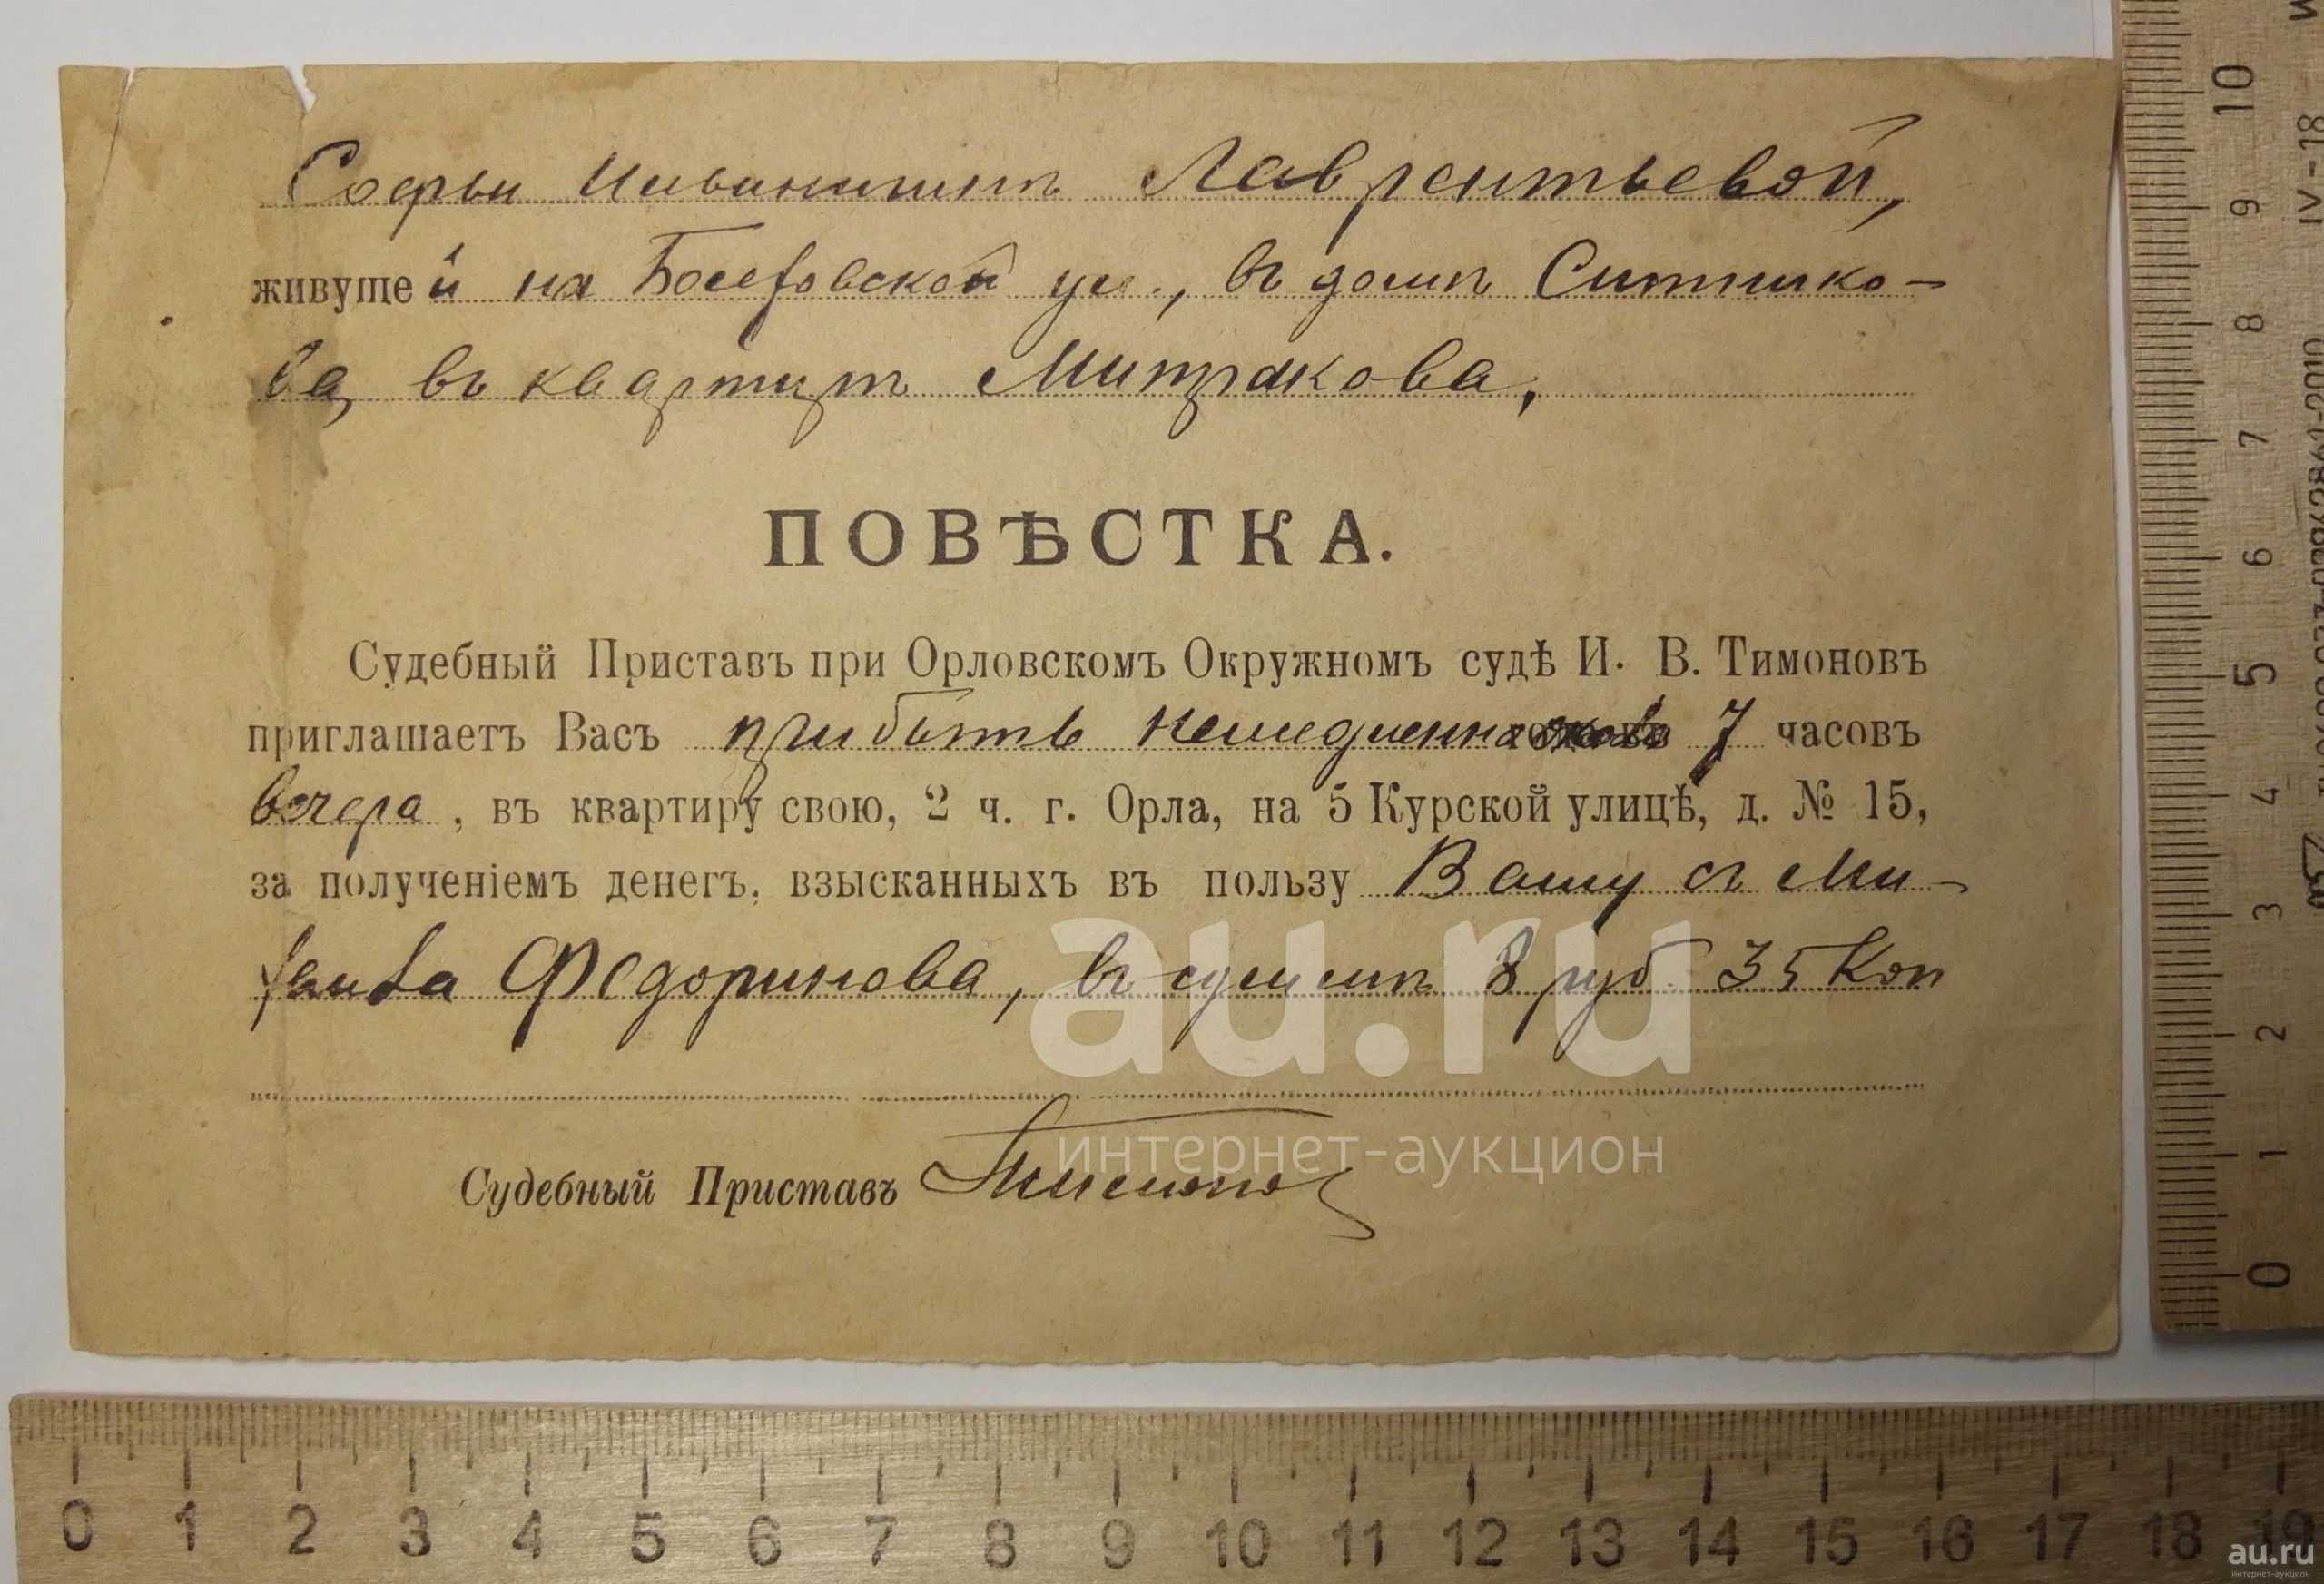 Софьи Ильинишнѣ Лаврентьевой,
живущей на Болховской ул., въ домѣ Ситнико-
ва, въ квартирѣ Митракова,
ПОВѢСТКА.
Судебный Приставъ при Орловскомъ Окружномъ судѣ И. В. Тимоновъ
приглашаетъ Васъ прибыть немедленно 7 часовъ
вечера, въ квартиру свою, 2 ч. г. Орла, на 5 Курской улицѣ, д. № 15,
за полученіемъ денегъ. взысканныхъ въ пользу Вашу съ Ми-
Федоринова, въ суммѣ 8 руб. 35 Коп
Судебный Приставъ Тимоновъ
au.ru
интернет-аукцион
0 1 2 3 4 5 6 7 8 9 10 11 12 13 14 15 16 17 18 19
10
9
8
7
6
5
4
3
2
1
0
IV-18
au.ru
интернет-аукцион